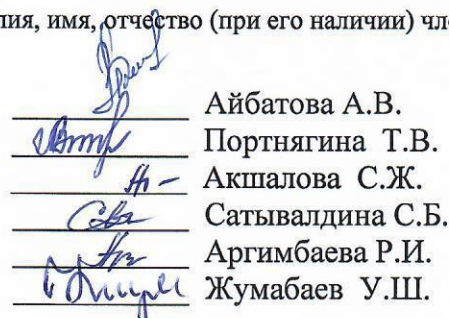 лия, имя, отчество (при его наличии) чл
Айбатова А.В.
Портнягина Т.В.
Акшалова С.Ж.
Сатывалдина С.Б.
Аргимбаева Р.И.
Жумабаев У.Ш.